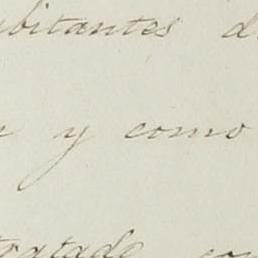 abitantes d
y como
tratado co